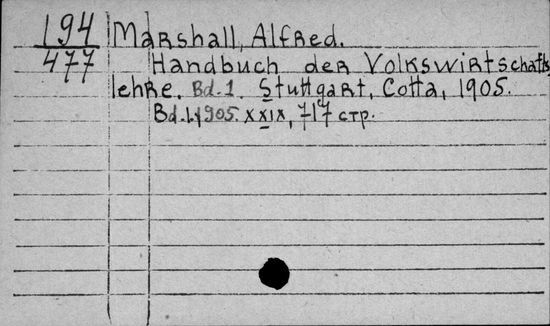 194
477
Marshall, Alfred.
Handbuch der Volkswirtschafts
lehre. Bd.1. Stuttgart, Cotta, 1905.
Bd.1.1905. XXIX, 717 стр.